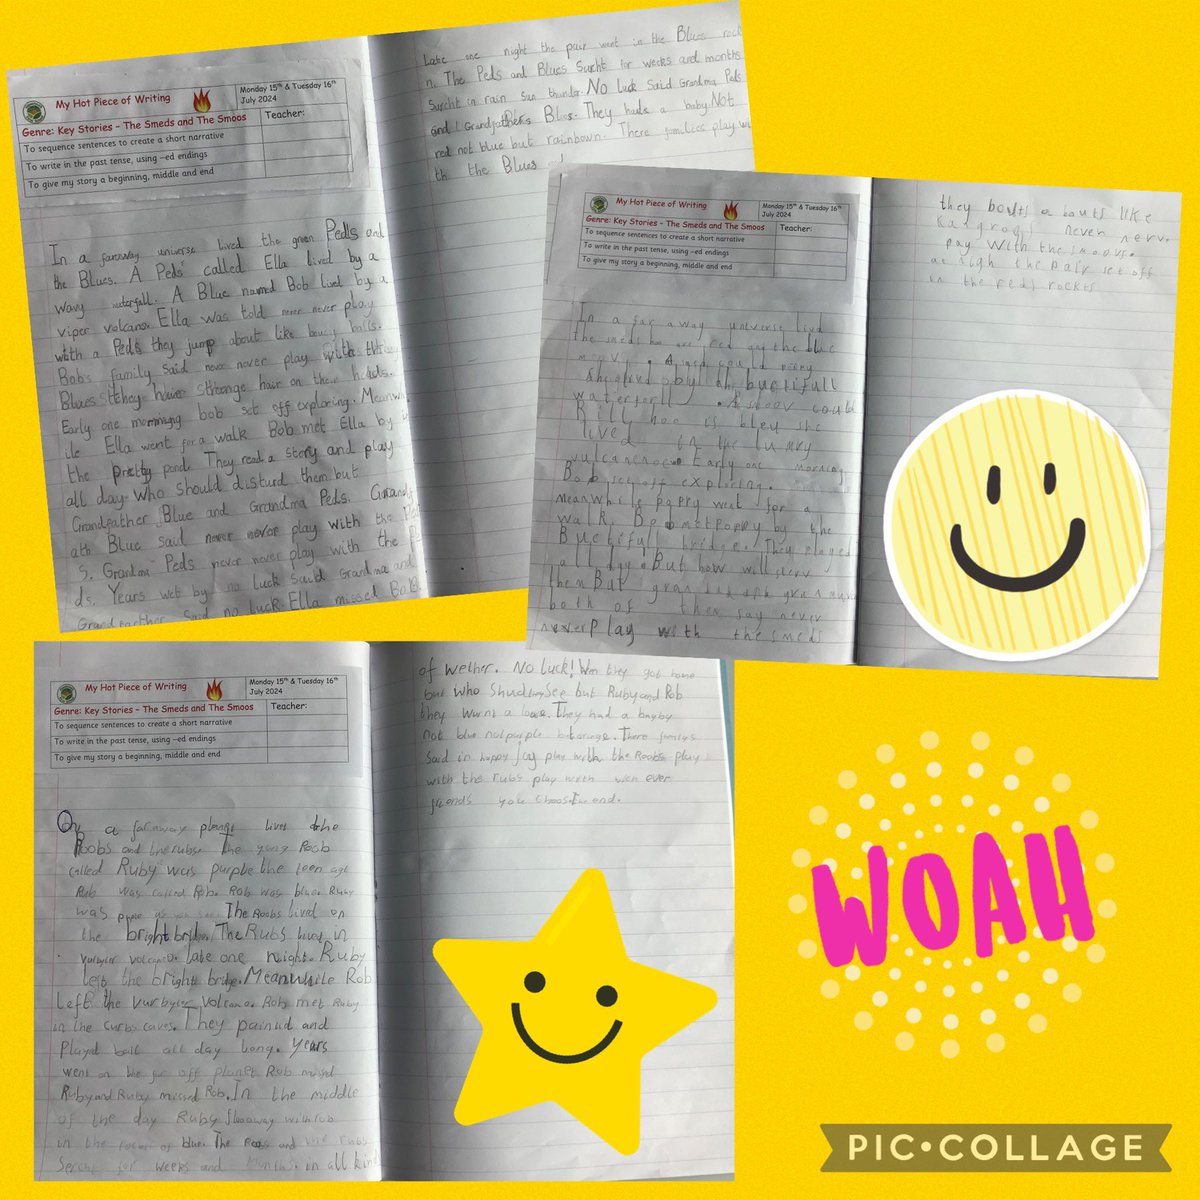 My Hot Piece of Writing
Monday 15th & Tuesday 16th
July 2024
Genre: Key Stories - The Smeds and The Smoos
Teacher:
To sequence sentences to create a short narrative
To write in the past tense, using -ed endings
To give my story a beginning, middle and end
In a faraway universe lived the green Peds and
the Blues. A Peds called Ella lived by a
wavy waterfall. A Blue named Bob lived by a
viper volcano. Ella was told never never play
with a Peds they jump about like bouncy balls.
Bob's family said never never play with the
Blues they have streange hair on their heads.
Early one morning bob set off exploring. Meanwh
ile Ella went for a walk Bob met Ella by
the pretty pond. They read a story and play
all day. Who should disturd them but
Grandfather Blue and Grandma Peds. Grandf
ath Blue said never never play with the
s. Grandma Peds never never play with the
ds. Years wet by no luck said Grandma and
Grandfarther said no luck. Ella missed Bob
Late one night the pair went in the Blues rock
n. The Peds and Blues Surcht for weeks and months
Surcht in rain sun thunder. No luck Said Grandma Peds
and Grandfathers Blues. They had a baby Not
red not blue but rainbown. There families play wi
th the Blues
My Hot Piece of Writing
Monday 15th & Tuesday 16th
July 2024
Genre: Key Stories - The Smeds and The Smoos
Teacher:
To sequence sentences to create a short narrative
To write in the past tense, using -ed endings
To give my story a beginning, middle and end
In a far away universe livd
The smeds ho are red and the blue
could popy
buctifull
waterferll. A smoov could
Billy hoo is bleu she
lived in the lumky
Early one morning
Bob set off exploring.
Meanwhile poppy went for a
walk. Bob met poppy by the
Buctifull bridge. They played
all day. But how will
them But gran
both of them say never
never play with the smeds
they bouts a bouts like
Kangroo never nerve
pay with the smoovs.
at nigh the pair set off
in the reds rockts
My Hot Piece of Writing
Monday 15th & Tuesday 16th
July 2024
Genre: Key Stories - The Smeds and The Smoos
Teacher:
To sequence sentences to create a short narrative
To write in the past tense, using -ed endings
To give my story a beginning, middle and end
On a faraway planet lives the
Roobs and the rubs. The yung Roob
called Ruby was purple the teen age
Rub was called Rob. Rob was blue. Ruby
was as you see. The Roobs lived on
the bright bridge. The Rubs lived in
late one night. Ruby
left the bright bridge. Meanwhile Rob
Left the vurbyler volcano. Rob met Ruby
in the curby caves. They painud and
Playd ball all day long. Years
went on the far off planet Rob missd
Ruby and Ruby missed Rob. In the middle
of the day Ruby flooaway with rob
in the rocket of blue. The Roobs and the rubs
Sercht for weeks and months. in all kind
of wether. No luck! Wen they got home
but who shud they see but Ruby and Rob
they wurnt a lone. They had a bayby
not blue not purple but orange. There familys
said in happy joy play with the Roobs play
with the rubs play with wen ever
friends you choose. The end.
WOAH
PIC•COLLAGE